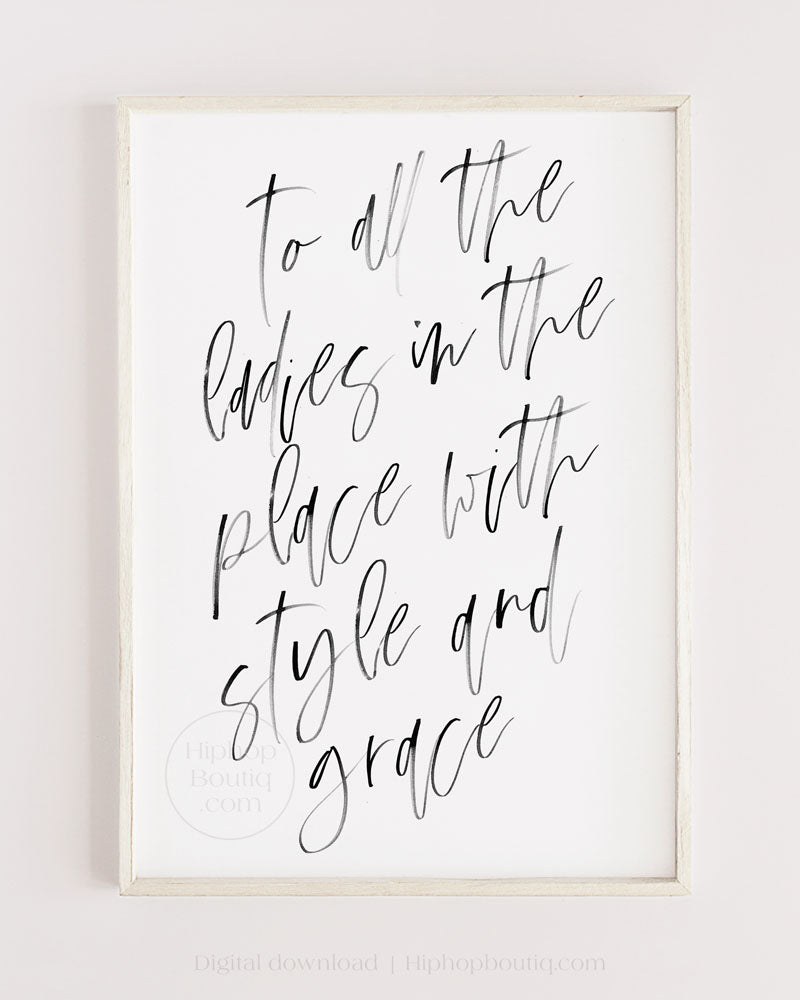 to all the
ladies in the
place with
style and
grace
Hiphop
Boutiq
.com
Digital download | Hiphopboutiq.com